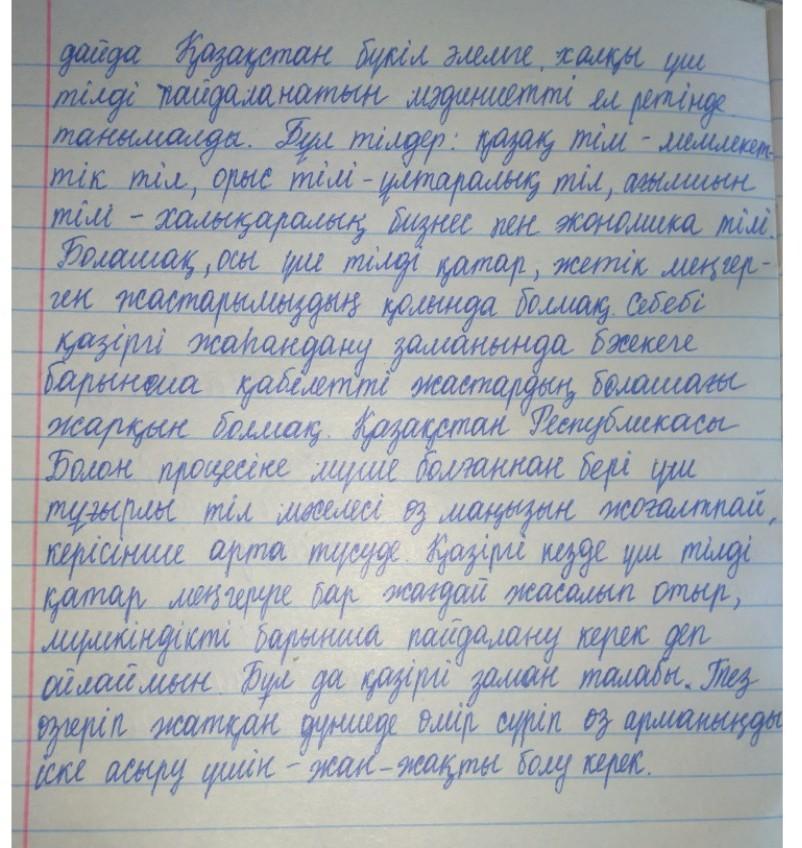 дайда Қазақстан бүкіл әлемге халқы үш
тілді пайдаланатын мәдениетті ел ретінде
танымалды. Бұл тілдер: қазақ тілі - мемлекет-
тік тіл, орыс тілі - ұлтаралық тіл, ағылшын
тілі - халықаралың бизнес пен экономика тілі.
Болашақ, осы үш тілді қатар, жетік меңгер-
ген жастарымыздың қолында болмақ. Себебі
қазіргі жаһандану заманында бжекеге
барынша қабілетті жастардың болашағы
жарқын болмақ. Қазақстан Республикасы
Болон процесіне мүше болғаннан бері үш
тұғырлы тіл мәселесі өз маңызын жоғалтпай,
керісінше арта түсуде. Қазіргі кезде үш тілді
қатар меңгеруге бар жағдай жасалып отыр,
мүмкіндікті барынша пайдалану керек деп
ойлаймын. Бұл да қазіргі заман талабы. Тез
өзгеріп жатқан дүниеде өмір сүріп өз арманыңды
іске асыру үшін - жан-жақты болу керек.